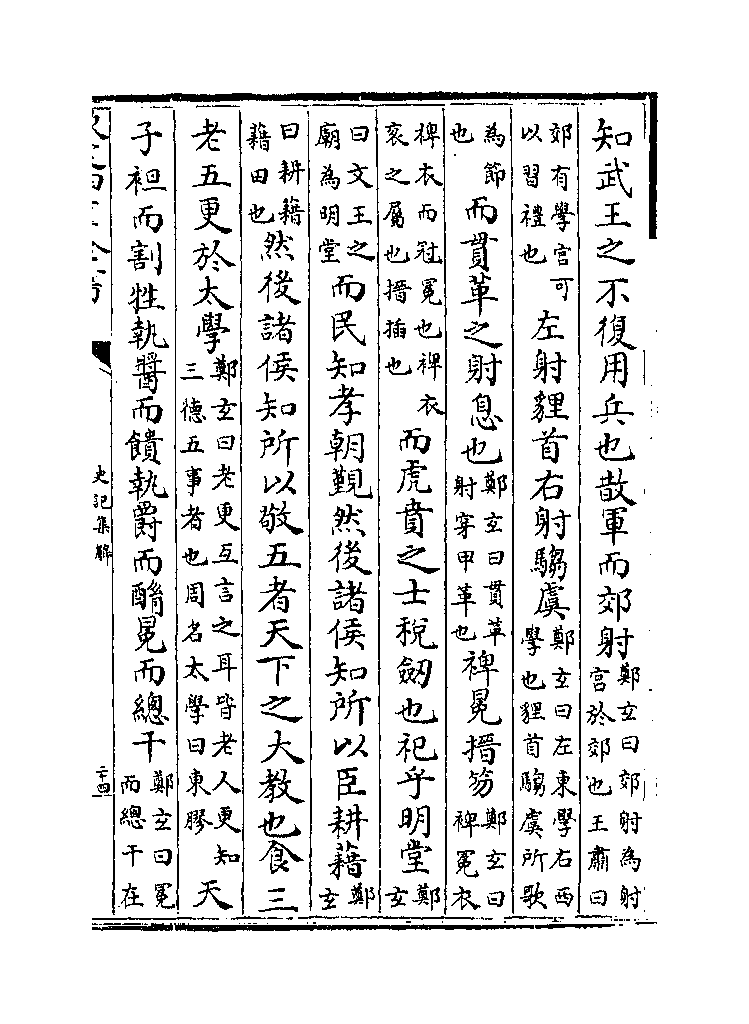 知武王之不復用兵也散軍而郊射鄭玄曰郊射為射宮於郊也王肅曰
郊有學宮可以習禮也左射貍首右射騶虞鄭玄曰左東學右西學也貍首騶虞所歌
為節也而貫革之射息也鄭玄曰貫革射穿甲革也裨冕搢笏鄭玄曰裨冕衣
裨衣而冠冕也裨衣衮之屬也搢插也而虎賁之士稅劒也祀乎明堂鄭玄
曰文王之廟為明堂而民知孝朝覲然後諸侯知所以臣耕藉鄭玄
曰耕藉藉田也然後諸侯知所以敬五者天下之大教也食三
老五更於太學鄭玄曰老更互言之耳皆老人更知三德五事者也周名太學曰東膠天
子袒而割牲執醬而饋執爵而酳冕而總干鄭玄曰冕而總干在
史記集解
二十四